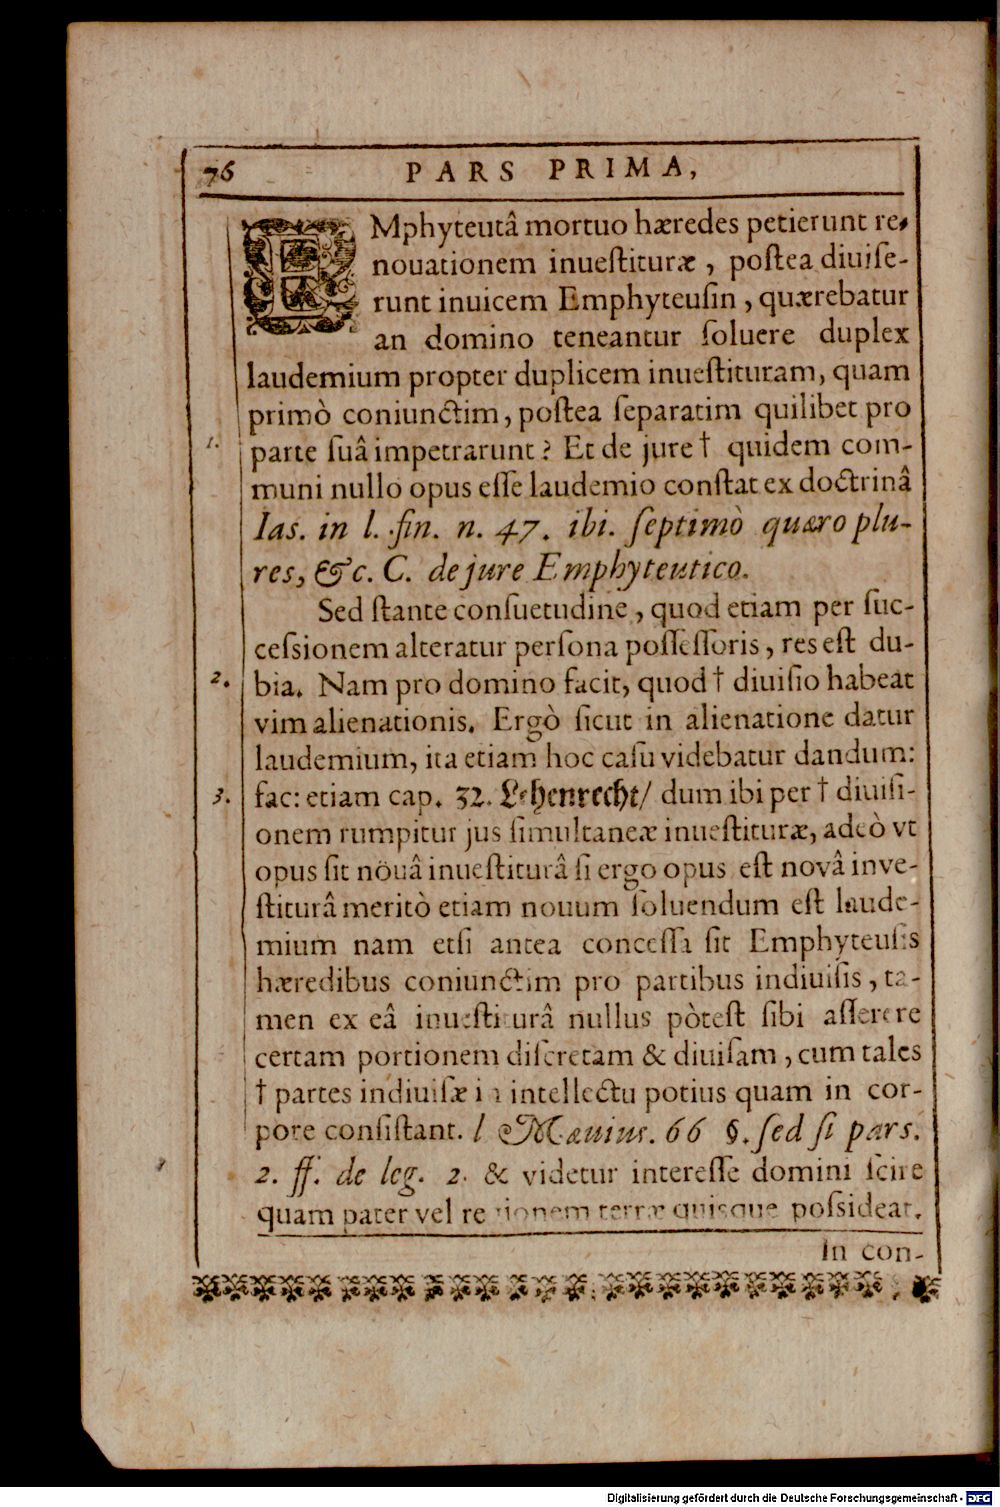 76 PARS PRIMA,
EMphyteutâ mortuo hæredes petierunt re-
nouationem inuestituræ, postea diuise-
runt inuicem Emphyteusin, quærebatur
an domino teneantur soluere duplex
laudemium propter duplicem inuestituram, quam
primò coniunctim, postea separatim quilibet pro
1. parte suâ impetrarunt? Et de jure † quidem com-
muni nullo opus esse laudemio constat ex doctrinâ
Ias. in l. fin. n. 47. ibi. septimò quæro plu-
res, &c. C. de jure Emphyteutico.
Sed stante consuetudine, quod etiam per suc-
cessionem alteratur persona possessoris, res est du-
2. bia. Nam pro domino facit, quod † diuisio habeat
vim alienationis. Ergò sicut in alienatione datur
laudemium, ita etiam hoc casu videbatur dandum:
3. fac: etiam cap. 32. Lehenrecht/ dum ibi per † diuisi-
onem rumpitur jus simultaneæ inuestituræ, adeò vt
opus sit nouâ inuestiturâ si ergo opus est novâ inve-
stiturâ meritò etiam nouum soluendum est laude-
mium nam etsi antea concessa sit Emphyteusis
hæredibus coniunctim pro partibus indiuisis, ta-
men ex eâ inuestiturâ nullus pòtest sibi asserere
certam portionem discretam & diuisam, cum tales
† partes indiuisæ in intellectu potius quam in cor-
pore consistant. l Mæuius. 66 §. sed si pars.
2. ff. de leg. 2. & videtur interesse domini scire
quam pater vel regionem terræ quisque possideat.
In con-
Digitalisierung gefördert durch die Deutsche Forschungsgemeinschaft - DFG